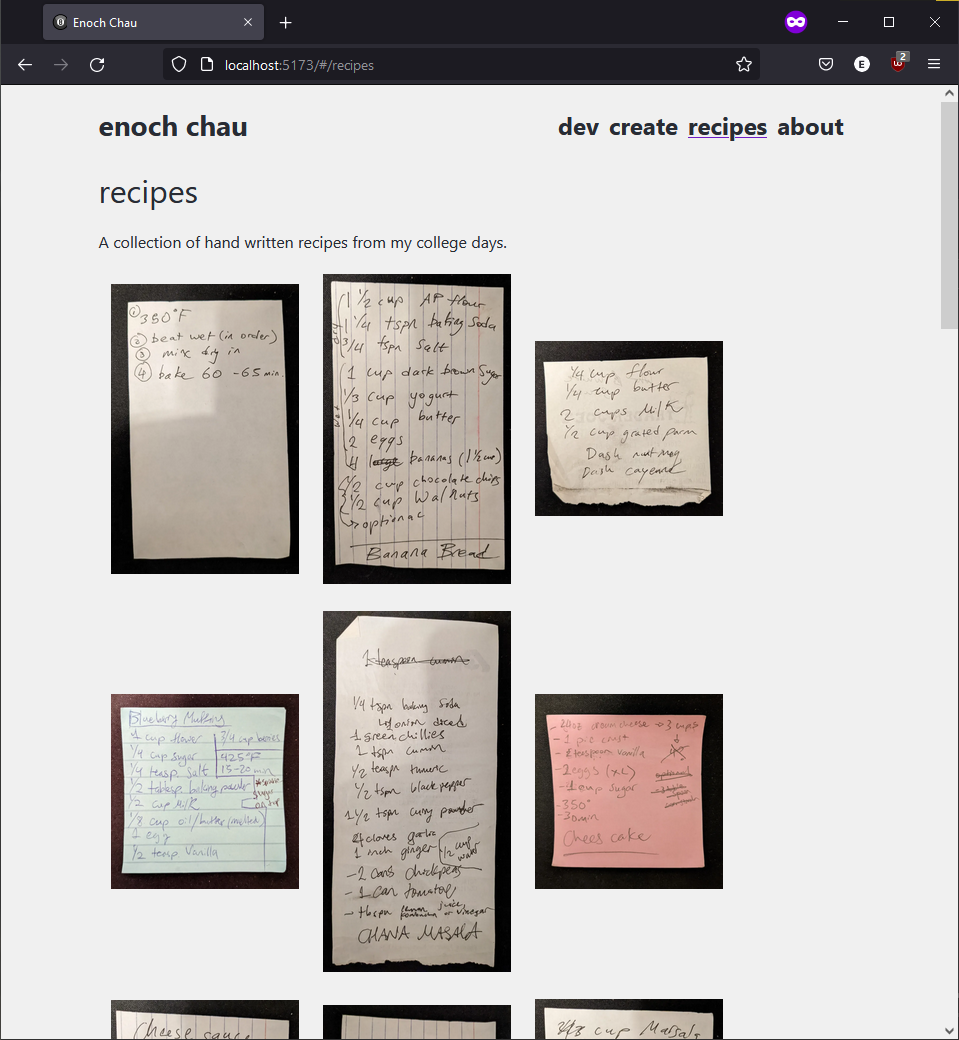 Enoch Chau
localhost:5173/#/recipes
2
enoch chau
dev create recipes about
recipes
A collection of hand written recipes from my college days.
① 350°F
② beat wet (in order)
③ mix dry in
④ bake 60 - 65 min.
1 1/2 cup AP flour
1 1/4 tspn baking Soda
3/4 tspn Salt
1 cup dark brown Sugar
1/3 cup yogurt
1/4 cup butter
2 eggs
4 large bananas (1 1/2 cup)
1/2 cup chocolate chips
1/2 cup Walnuts
optional
Banana Bread
1/4 cup flour
1/4 cup butter
2 cups Milk
1/2 cup grated parm
Dash nutmeg
Dash cayenne
Blueberry Muffins
1 cup flower
3/4 cup berries
1/4 cup sugar
425°F
1/4 teasp. Salt
15-20 min
1/2 tablesp baking powder
1/2 cup Milk
1/8 cup oil/butter (melted)
1 egg
1/2 teasp Vanilla
1 teaspoon cumin
1/4 tspn baking Soda
1 onion diced
1 green chillies
2 tspn cumin
1/2 teaspn tumeric
1/2 tspn black pepper
1 1/2 tspn curry powder
4 cloves garlic
1 inch ginger
1/2 cup water
- 2 cans chickpeas
- 1 can tomatoe
- tbspn lemon juice or vinegar
CHANA MASALA
cream cheese → 3 cups
- 1 pie crust
teaspoon vanilla
- 2 eggs (XL)
- 1 cup sugar
- 350°
- 30min
Chees cake
Cheese sauce
cup Marsala